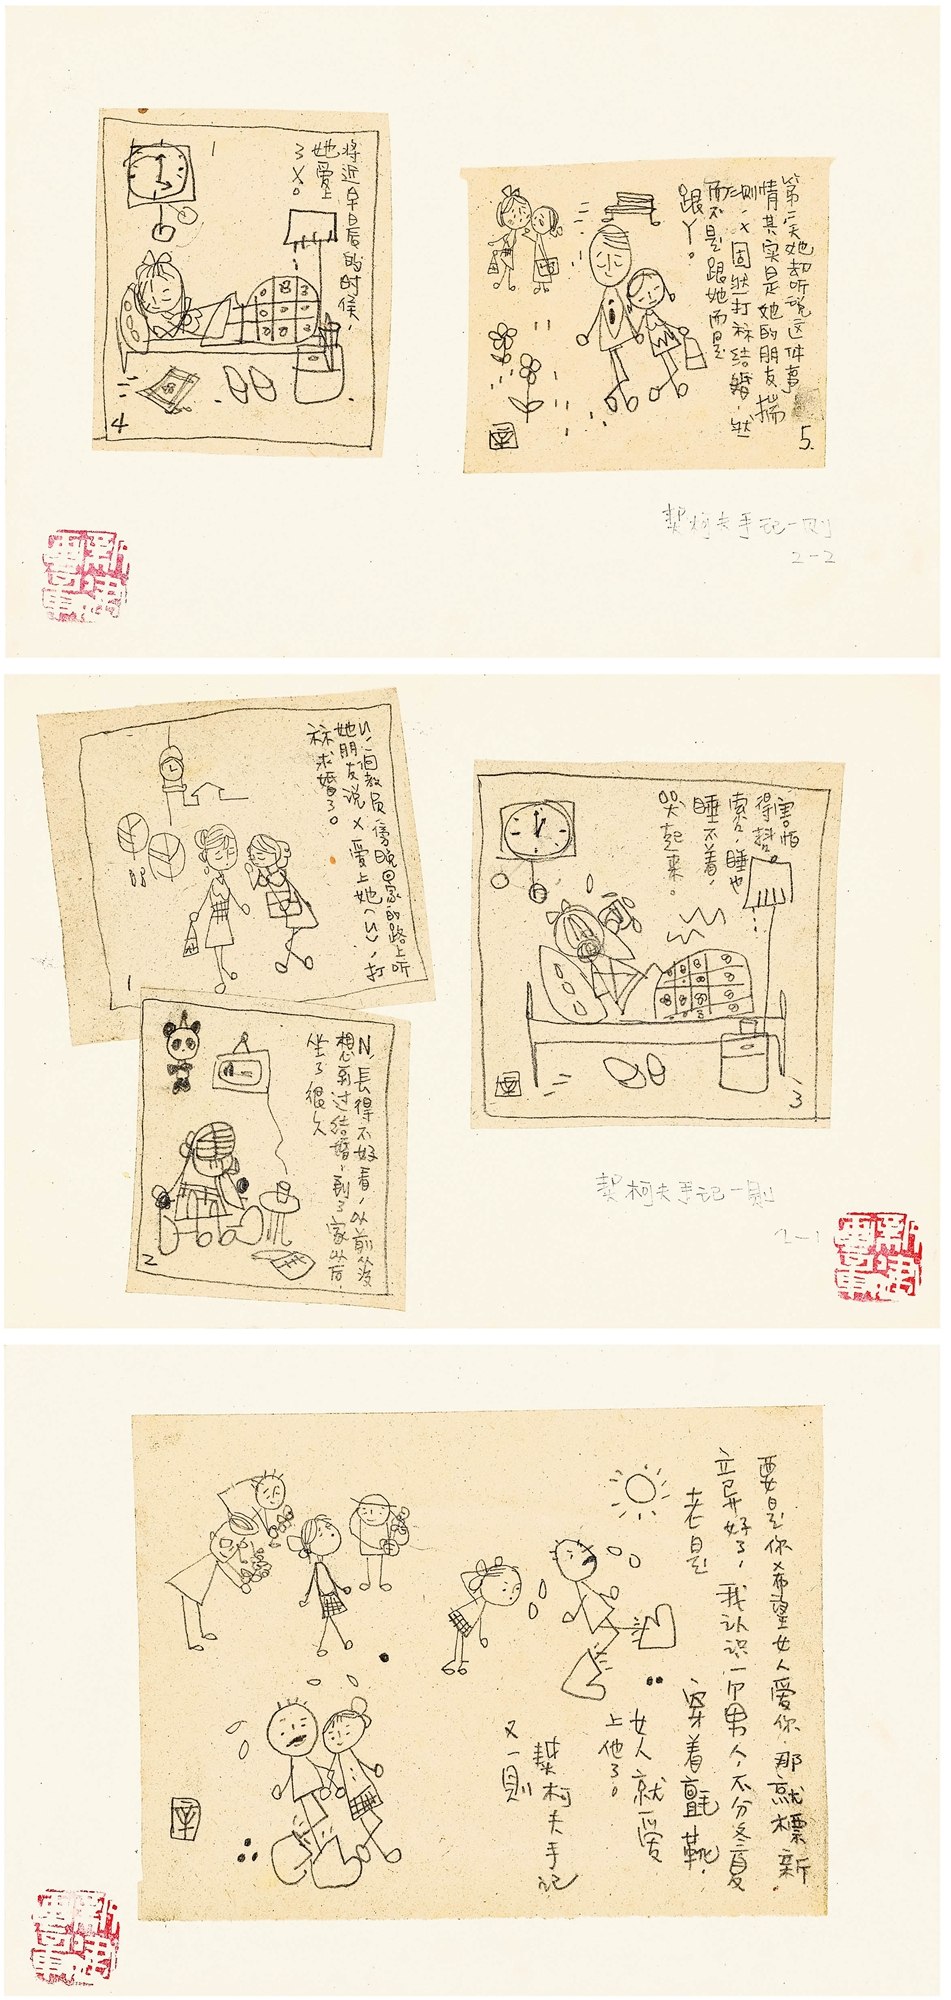 将近早晨的时候，
她爱上
了X。
4
第二天她却听说这件事
情其实是她的朋友揣
测，X固然打算结婚，然
而不是跟她而是
跟丫。
5.
契柯夫手记一则
2-2
教员傍晚回家的路上听
她朋友说X爱上她(N)，打
算求婚了。
1
N.長得不好看，以前没
想到过结婚，到了家以后，
坐了很久
2
害怕
得哆
索，睡也
睡不着，
哭起来。
3
契柯夫手记一则
2-1
要是你希望女人爱你，那就標新
立异好了，我认识一个男人，不分冬夏
老是
穿着氈靴，
女人就爱
上他了。
契柯夫手记
又一則